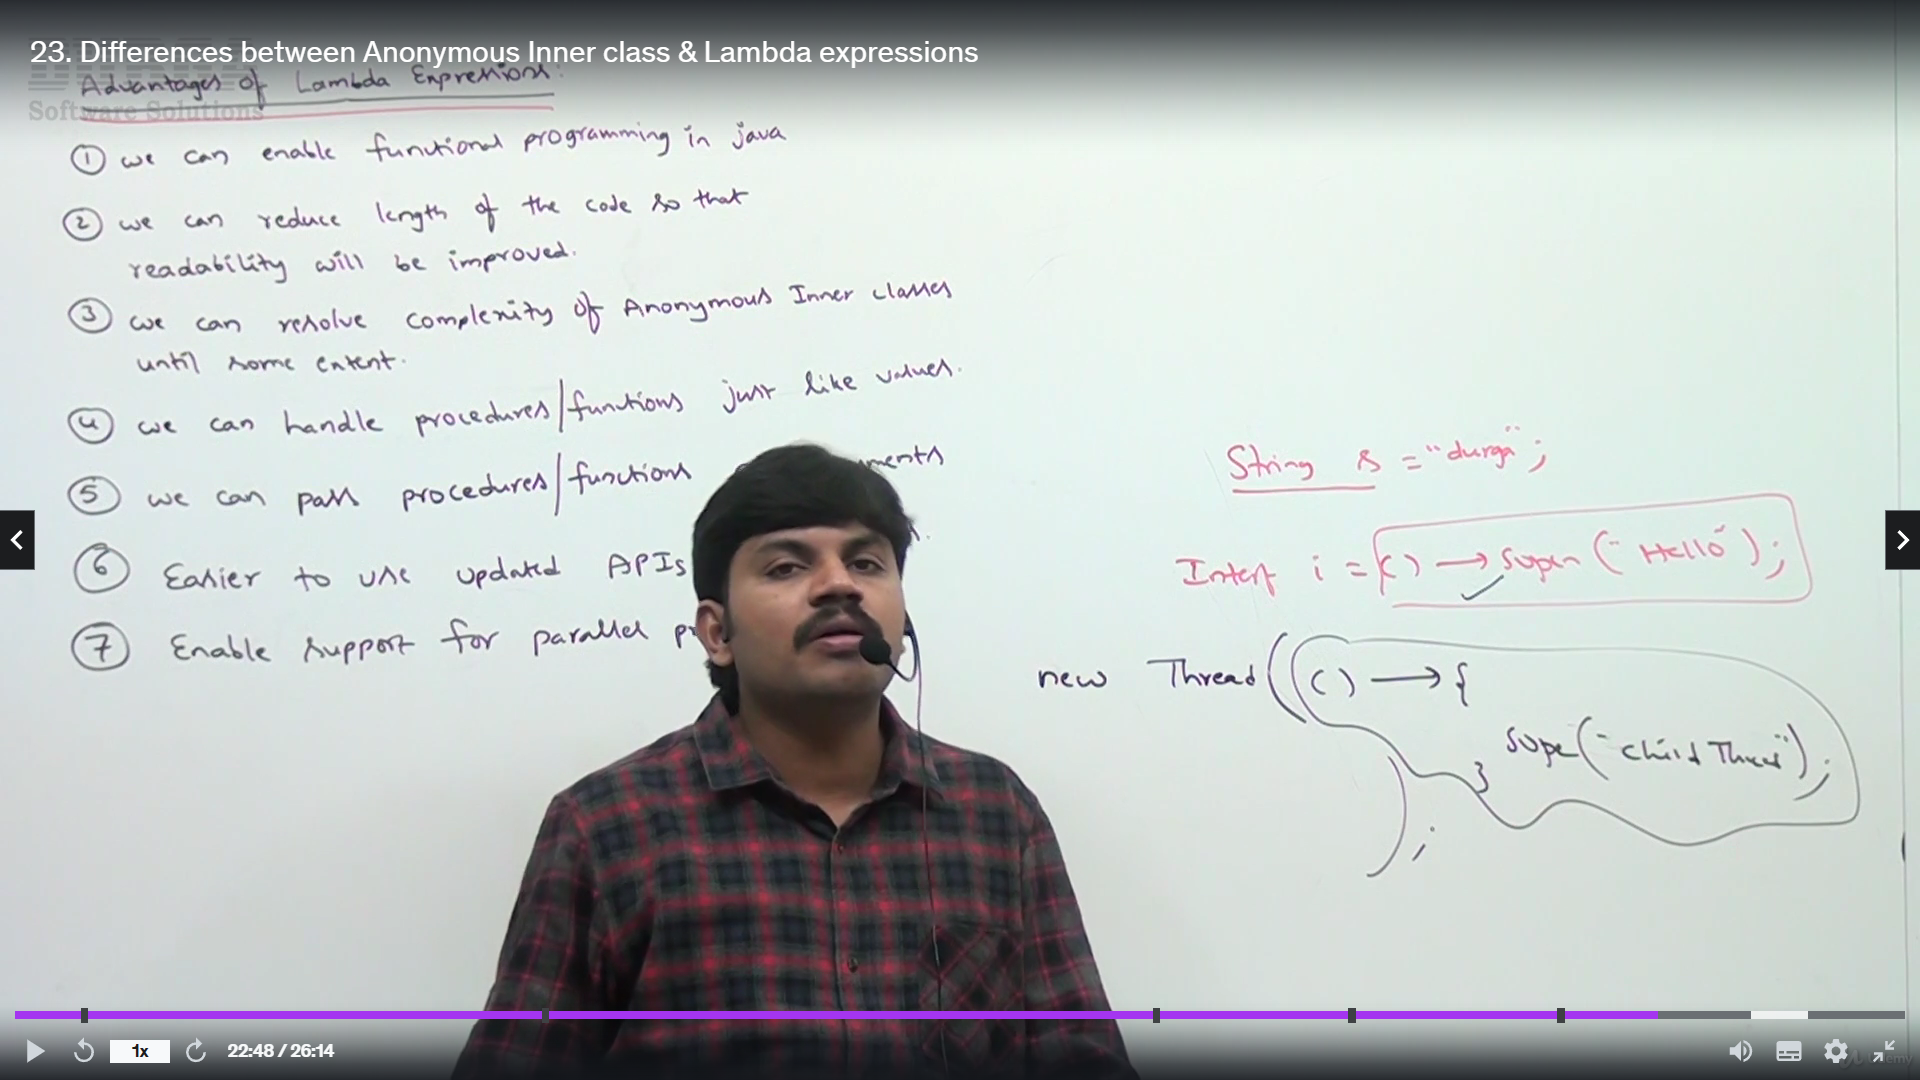 23. Differences between Anonymous Inner class & Lambda expressions
Advantages of Lambda Expressions:
Software Solutions
① we can enable functional programming in java
② we can reduce length of the code so that
readability will be improved.
③ we can resolve complexity of Anonymous Inner classes
until some extent.
④ we can handle procedures/functions just like values.
⑤ we can pass procedures/functions
⑥ Easier to use updated APIs
⑦ Enable support for parallel
String s = "durga";
Interf i = () → sopen ("Hello");
new Thread (() → {
sope("child Thread");
}
);
22:48 / 26:14
1x